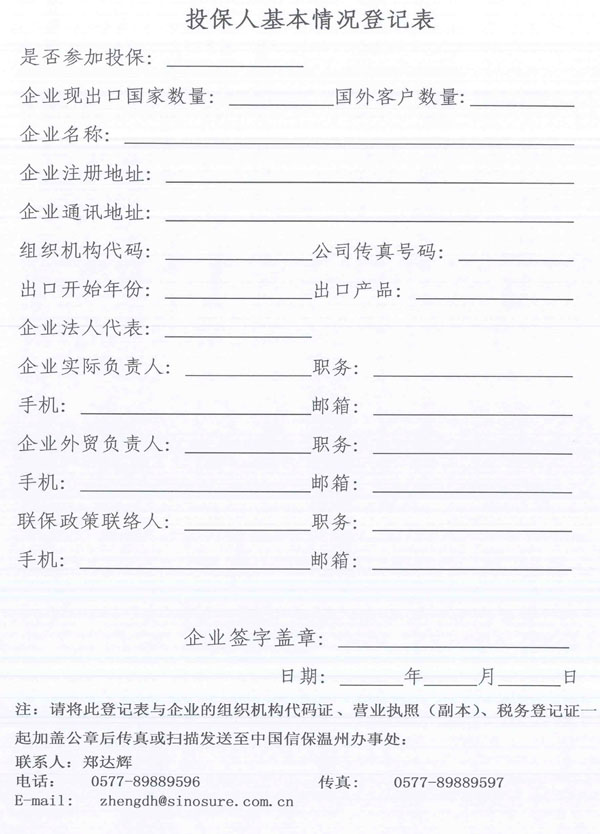 投保人基本情况登记表
是否参加投保：
企业现出口国家数量： 国外客户数量：
企业名称：
企业注册地址：
企业通讯地址：
组织机构代码： 公司传真号码：
出口开始年份： 出口产品：
企业法人代表：
企业实际负责人： 职务：
手机： 邮箱：
企业外贸负责人： 职务：
手机： 邮箱：
联保政策联络人： 职务：
手机： 邮箱：
企业签字盖章：
日期： 年 月 日
注：请将此登记表与企业的组织机构代码证、营业执照（副本）、税务登记证一
起加盖公章后传真或扫描发送至中国信保温州办事处：
联系人：郑达辉
电话： 0577-89889596 传真： 0577-89889597
E-mail： zhengdh@sinosure.com.cn